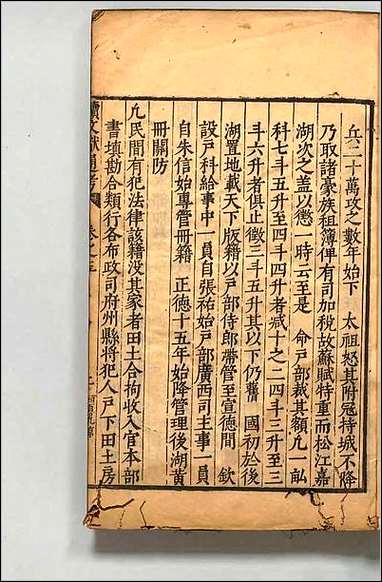 兵二十萬攻之數年始下　太祖怒其附寇持城不降
乃取諸豪族租簿俾有司加稅故蘇賦特重而松江嘉
湖次之蓋以懲一時云至是　命戶部裁其額凡一畝
科七斗五升至四斗四升者減十之二四斗三升至三
斗六升者俱止徵三斗五升其以下仍舊　國初於後
湖置地載天下版籍以戶部侍郎帶管至宣德間　欽
設戶科給事中一員自張祐始戶部廣西司主事一員
自朱信始專管冊籍　正德十五年始降管理後湖黃
冊關防
凡民間有犯法律該籍沒其家者田土合拘收入官本部
書填勘合類行各布政司府州縣將犯人戶下田土房
續文獻通考　卷之三